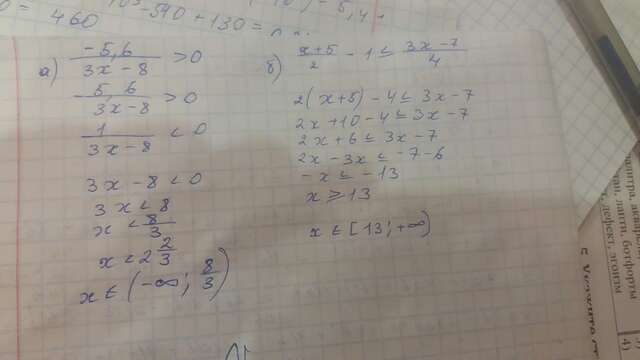 460
-590 + 130 =
а) -5,6 / 3x - 8 > 0
- 5,6 / 3x - 8 > 0
1 / 3x - 8 < 0
3x - 8 < 0
3x < 8
x < 8/3
x < 2 2/3
x ∈ (-∞; 8/3)
б) x+5 / 2 - 1 ≤ 3x - 7 / 4
2(x+5) - 4 ≤ 3x - 7
2x + 10 - 4 ≤ 3x - 7
2x + 6 ≤ 3x - 7
2x - 3x ≤ -7 - 6
-x ≤ -13
x ≥ 13
x ∈ [13; +∞)
4)